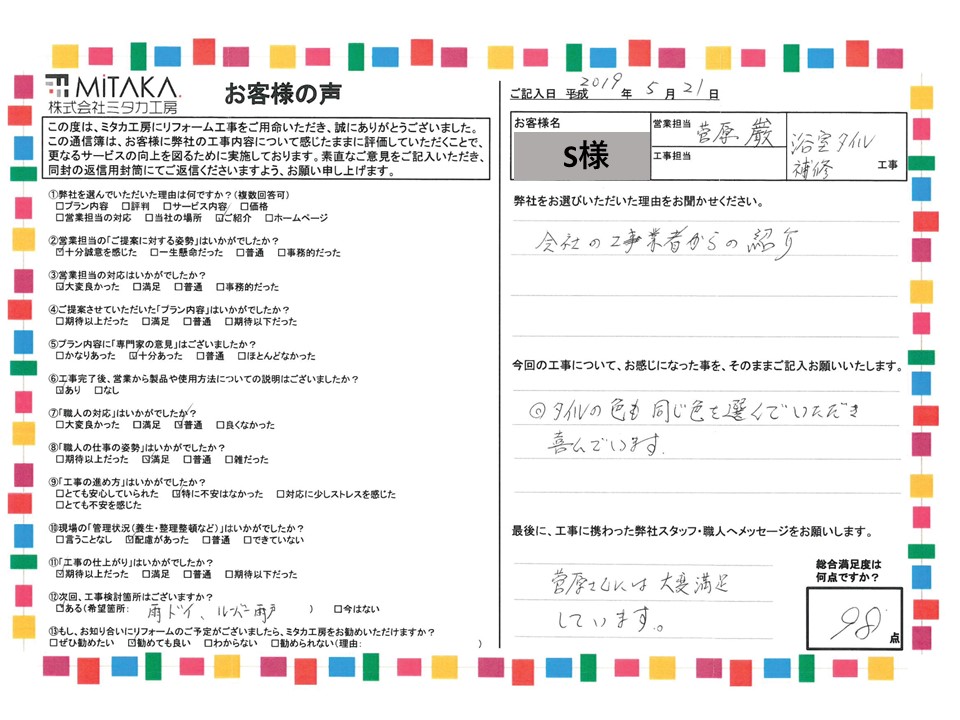 MiTAKA.
株式会社ミタカ工房
お客様の声
この度は、ミタカ工房にリフォーム工事をご用命いただき、誠にありがとうございました。
この通信簿は、お客様に弊社の工事内容について感じたままに評価していただくことで、
更なるサービスの向上を図るために実施しております。素直なご意見をご記入いただき、
同封の返信用封筒にてご返信くださいますよう、お願い申し上げます。
①弊社を選んでいただいた理由は何ですか?(複数回答可)
□プラン内容 □評判 □サービス内容 □価格
□営業担当の対応 □当社の場所 ☑ご紹介 □ホームページ
②営業担当の「ご提案に対する姿勢」はいかがでしたか?
☑十分誠意を感じた □一生懸命だった □普通 □事務的だった
③営業担当の対応はいかがでしたか?
☑大変良かった □満足 □普通 □事務的だった
④ご提案させていただいた「プラン内容」はいかがでしたか?
□期待以上だった □満足 □普通 □期待以下だった
⑤プラン内容に「専門家の意見」はございましたか?
□かなりあった ☑十分あった □普通 □ほとんどなかった
⑥工事完了後、営業から製品や使用方法についての説明はございましたか?
☑あり □なし
⑦「職人の対応」はいかがでしたか?
□大変良かった □満足 ☑普通 □良くなかった
⑧「職人の仕事の姿勢」はいかがでしたか?
□期待以上だった ☑満足 □普通 □雑だった
⑨「工事の進め方」はいかがでしたか?
□とても安心していられた ☑特に不安はなかった □対応に少しストレスを感じた
□とても不安を感じた
⑩現場の「管理状況(養生・整理整頓など)」はいかがでしたか?
□言うことなし ☑配慮があった □普通 □できていない
⑪「工事の仕上がり」はいかがでしたか?
☑期待以上だった □満足 □普通 □期待以下だった
⑫次回、工事検討箇所はございますか?
☑ある(希望箇所: 雨ドイ、ルーバー雨戸 ) □今はない
⑬もし、お知り合いにリフォームのご予定がございましたら、ミタカ工房をお勧めいただけますか?
□ぜひ勧めたい ☑勧めても良い □わからない □勧められない(理由: )
ご記入日 平成 2019 年 5 月 21 日
お客様名
S様
営業担当 菅原 巌
工事担当
浴室タイル
補修 工事
弊社をお選びいただいた理由をお聞かせください。
会社の工事業者からの紹介
今回の工事について、お感じになった事を、そのままご記入お願いいたします。
◎タイルの色も同じ色を選んでいただき
喜んでいます.
最後に、工事に携わった弊社スタッフ・職人へメッセージをお願いします。
菅原さんには大変満足
しています。
総合満足度は
何点ですか?
98点